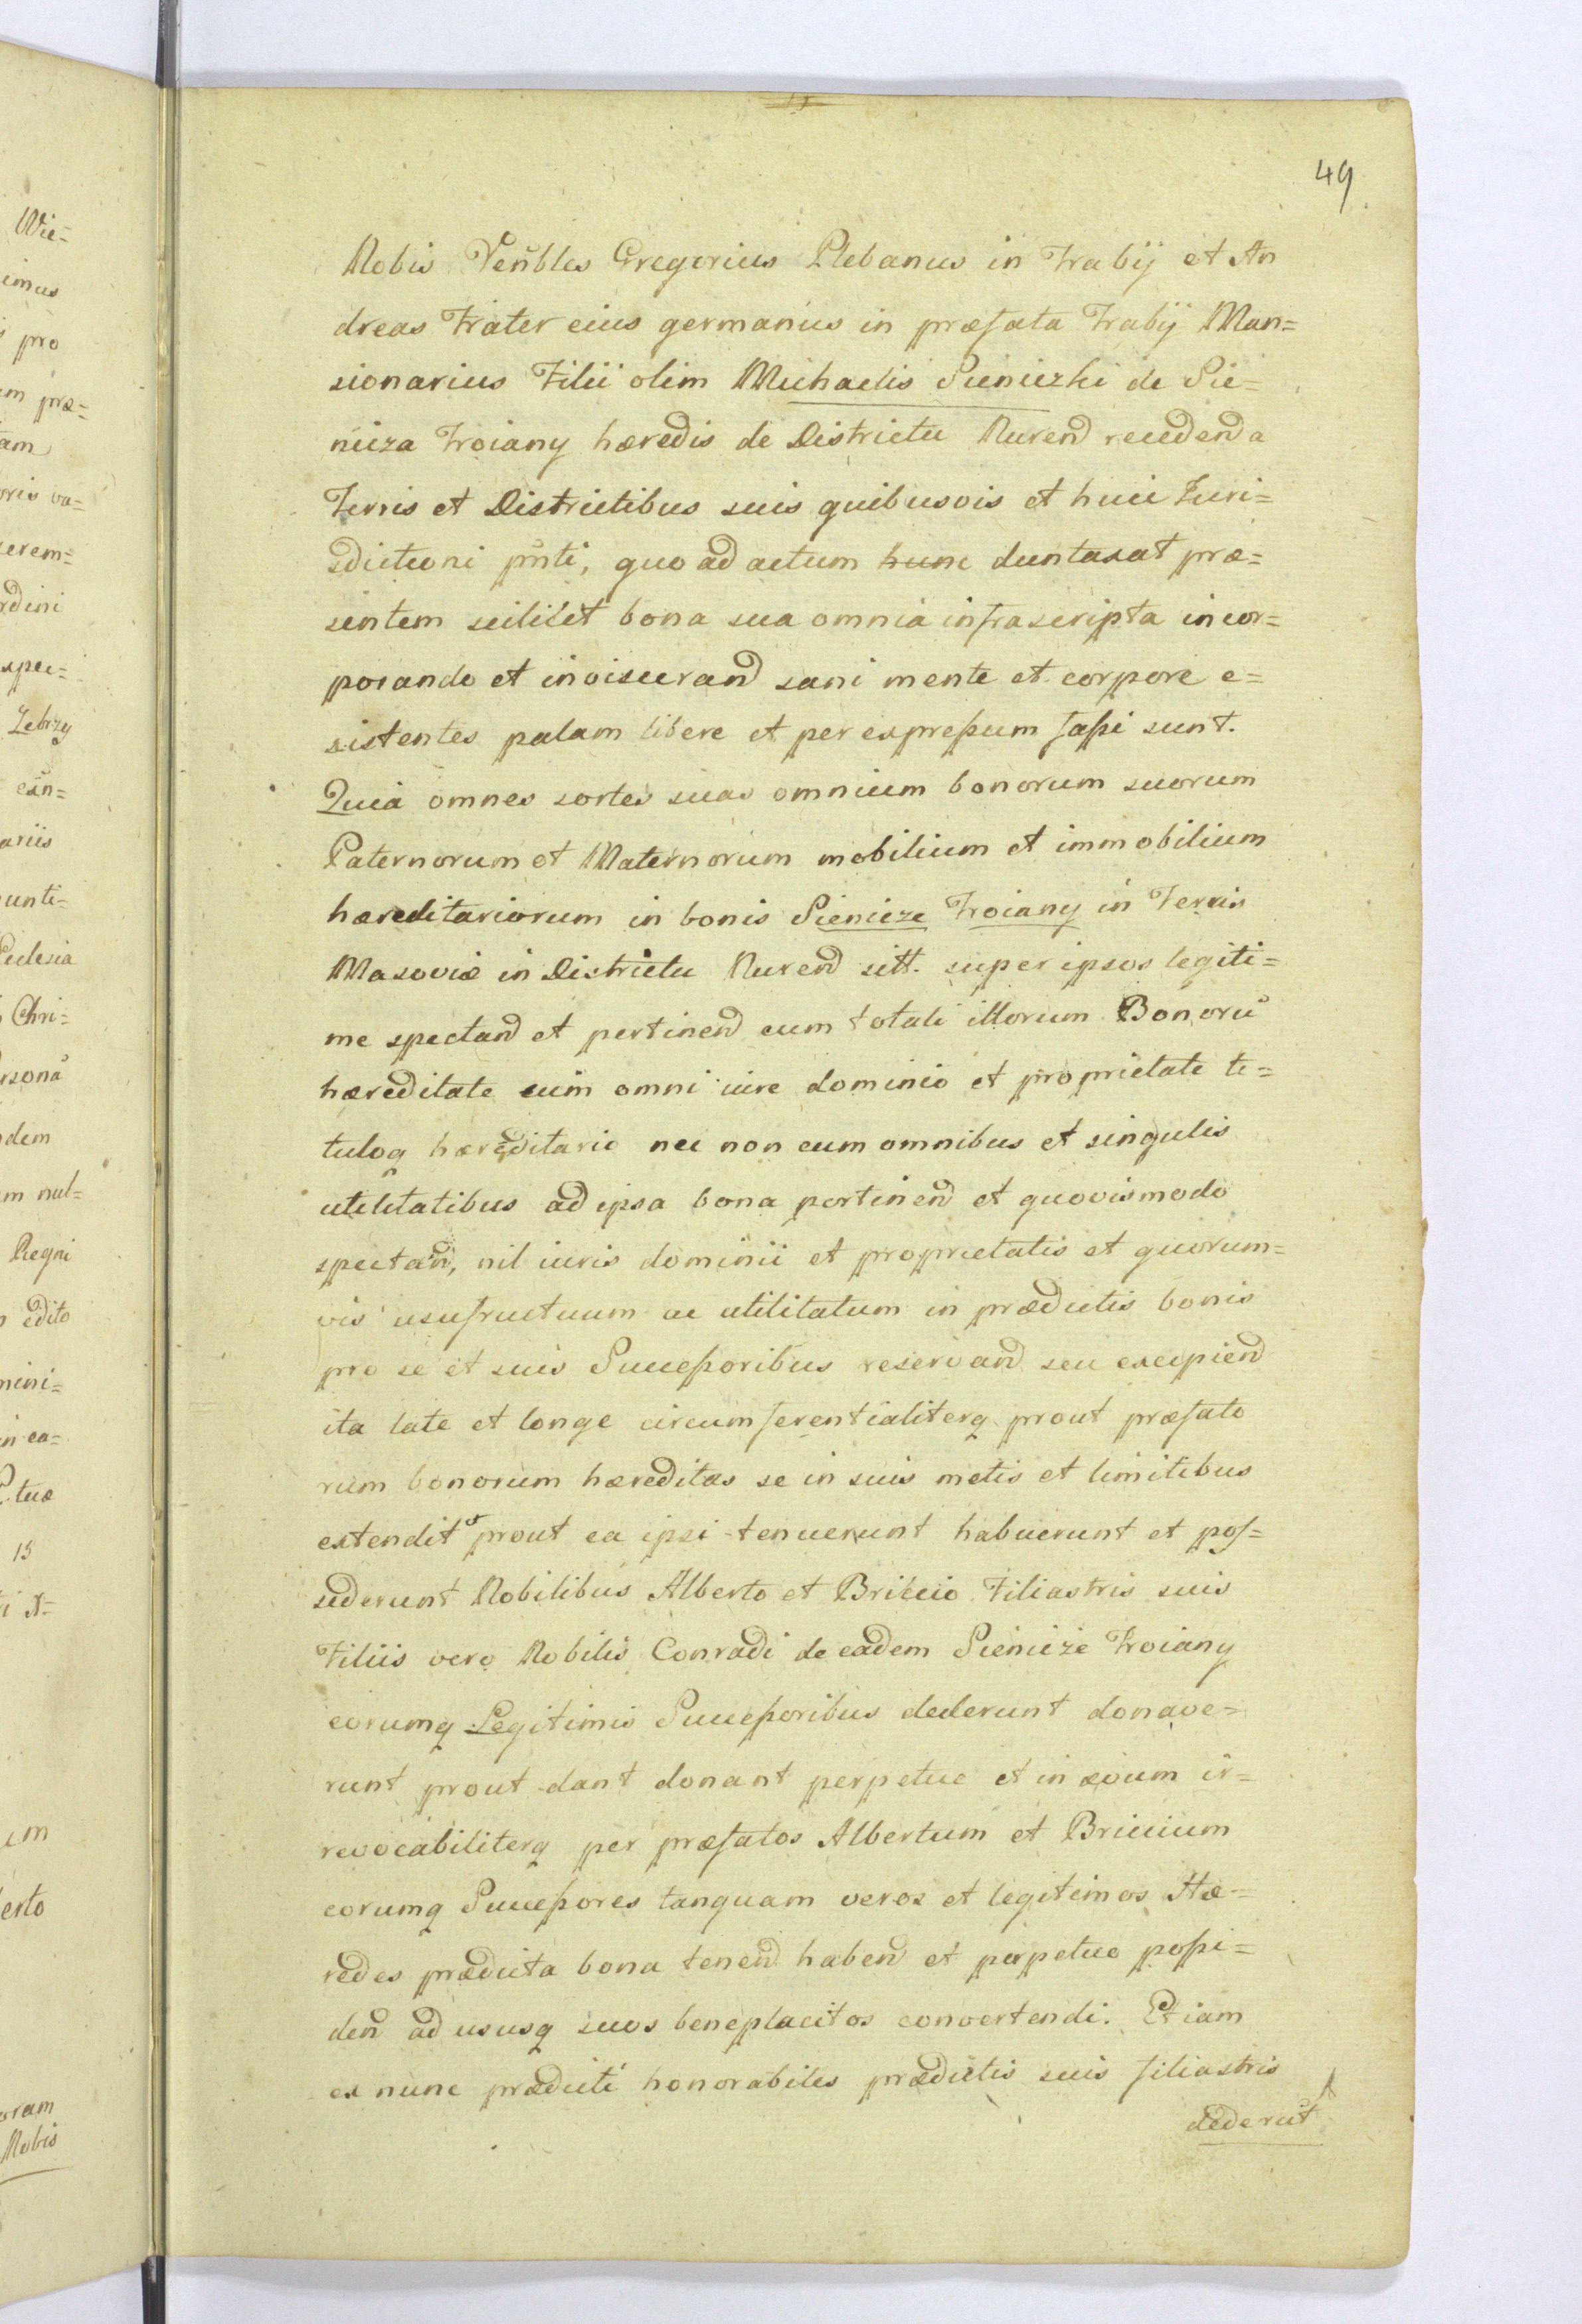 49
Nobis Venbles Gregorius Plebanus in Traby et An
dreas Frater eius germanus in præfata Traby Man=
sionarius Filii olim Michaelis Pieniczki de Pie=
nicza Troiany hæredis de Districtu Nurend recedenda
Terris et Districtibus suis quibusvis et huic Iuri=
sdictioni pnti, quo ad actum hunc duntaxat præ=
sentem scililet bona sua omnia infrascripta incor=
porando et inviscerand sani mente et corpore e=
xistentes palam libere et per expressum fassi sunt.
Quia omnes sortes suas omnium bonorum suorum
Paternorum et Maternorum mobilium et immobilium
hæreditariorum in bonis Pienicze Troiany in Terris
Masoviæ in Districtu Nurend sitt. super ipsos legiti=
me spectand et pertinend cum totali illorum Bonorū
hæreditate cum omni iure dominio et proprietate ti=
tuloq hæreditario nec non cum omnibus et singulis
utilitatibus ad ipsa bona pertinend et quovismodo
spectand, nil iuris dominii et proprietatis et quorum=
vis usufructuum ac utilitatum in prædictis bonis
pro se et suis Successoribus reservand seu excipiend
ita late et longe circumferentialiterq prout præfato
rum bonorum hæreditas se in suis metis et limitibus
extendit et prout ea ipsi tenuerunt habuerunt et pos=
sederunt Nobilibus Alberto et Briccio Filiastris suis
Filiis vero Nobilis Conradi de eadem Pienicze Troiany
eorumq Legitimis Successoribus dederunt donave=
runt prout dant donant perpetue et in ævum ir=
revocabiliterq per præfatos Albertum et Briccium
eorumq Successores tanquam veros et legitimos Hæ=
redes prædicta bona tenend habend et perpetuo possi=
dend ad ususq suos beneplacitos convertendi. Etiam
ex nunc prædicti honorabiles prædictis suis filiastris
dederūt
Wie=
imus
pro
em præ=
am
oris va=
rdini
Zebrzy
ariis
unti=
Chri=
rsonā
dem
m nul=
Regni
edito
mini=
in ea=
tuæ
15
erto
oram
Nobis